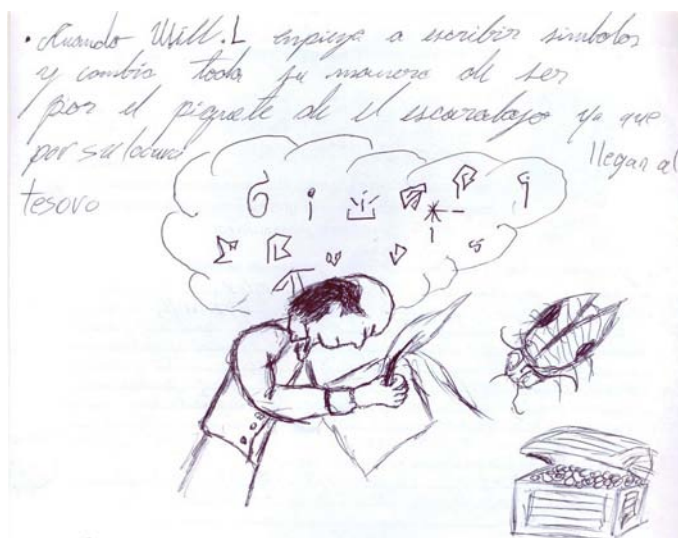 • Cuando Will.L empieza a escribir simbolos
y cambia toda su manera de ser
por el piquete de el escarabajo ya que
por su locura llegan al
tesoro